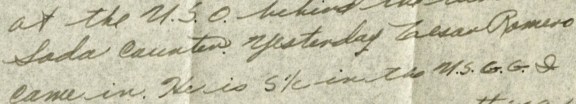 at the U.S.O. behind the
Soda Counter. Yesterday Cesar Romero
came in. He is S/c in the U.S.C.G. I